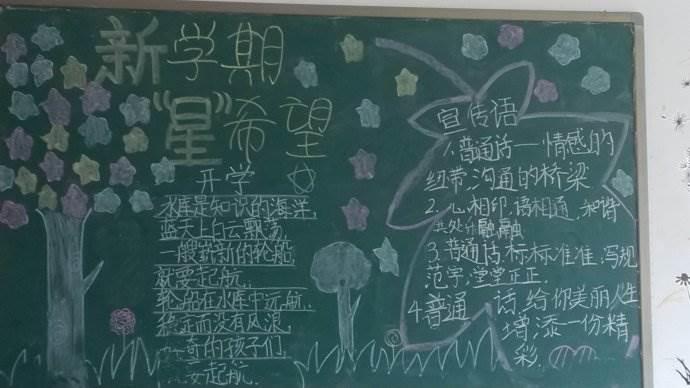 新学期
"星"希望
开学
水库是知识的海洋,
蓝天上白云飘荡,
一艘崭新的轮船,
就要起航.
轮船在水库中远航,
稳正而没有风浪,
奇的孩子们
要起航.
宣传语
1.普通话一情感的
纽带,沟通的桥梁
2.心相印,语相通,和谐
共处乐融融
3.普通话,标标准准,写规
范字,堂堂正正.
4.普通话,给你美丽人生
增添一份精
彩.